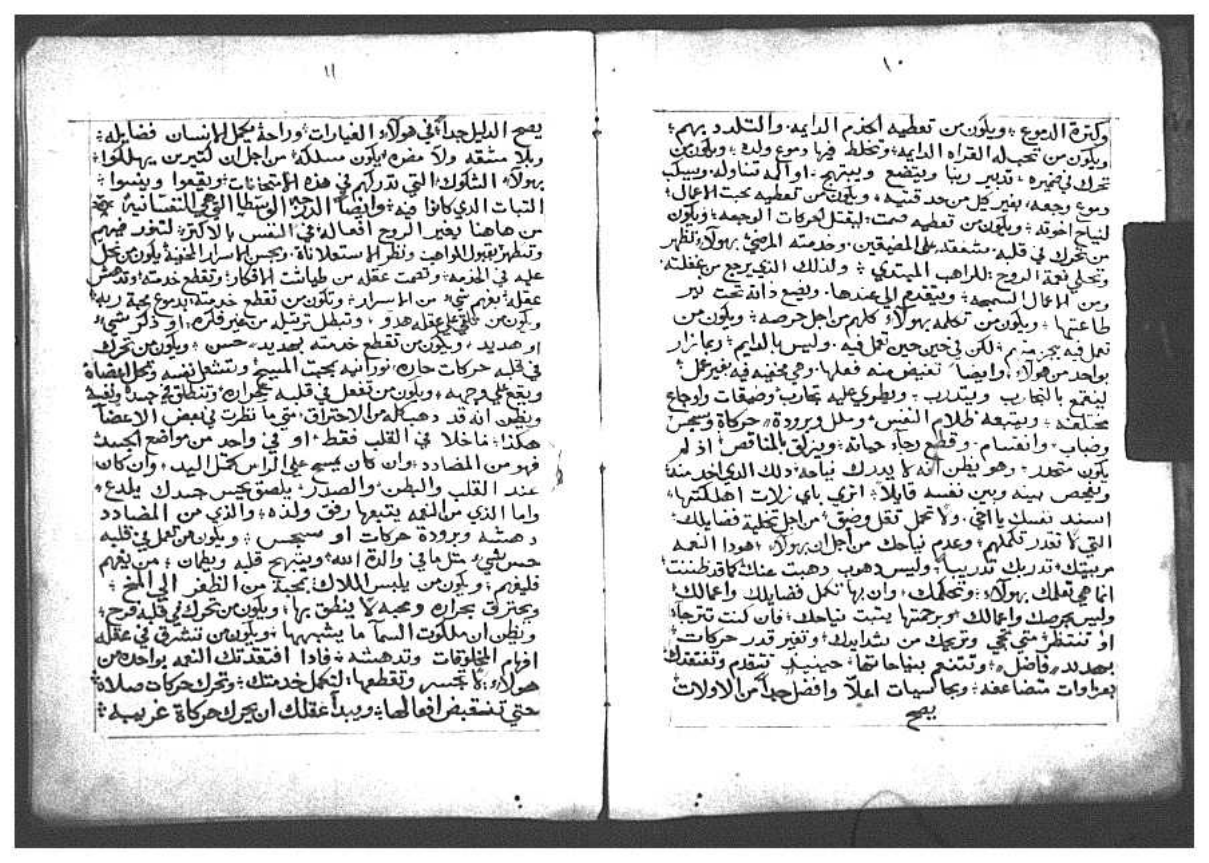 ١٠
وكثرة الدموع ؛ ويكون من تعطيه الخدم الدايمه. والتلدد بهم ؛
ويكون من تحبب له القراه الدايمه؛ وتخلط فيها دموع ولده ؛ ويكون من
تحرك في ضميره ، تدبير ربنا ويتضع ويبتهج ؛ او المه تناوله. ويسكب
دموع وجعه، بغير كيل من حد قنيته ؛ ويكون من تعطيه نحيت الاعمال؛
لنياح اخوته ؛ ويكون من تعطيه صمت؛ ليقتل حركات الوجعه ؛ ويكون
من تحرك في قلبه مشفقه على المضيقين. وخدمته المرضي؛ بهولاء تظهر
وتحلي نعمة الروح ؛ للراهب المبتدي ؛ ولذلك الذي يرجع من غفلته.
ومن الاعمال السمجه ؛ ويتقدم الي عندها. ويضع ذاته تحت نير
طاعتها ؛ ويكون من تكلمه بهولاء كلهم من اجل حرصه ؛ ويكون من
تعمل فيه بجزمنهم ؛ لكن في حين حين تعمل فيه . وليس بالدايم ؛ ربما زار
بواحد من هولاء، وايضا تغبض منه فعلها. وهي مخفيه فيه بغير عمل؛
لينفع بالتجارب ويتدرب ؛ وتطري عليه تجارب؛ وضيقات واوجاع
مختلفه ؛ ويتبعه ظلام النفس؛ وملل وبرودة، حركاة وسجس
وضباب، وانقسام. وقطع رجاء حياته؛ ويزلق بالمناقص؛ اذ لم
يكون متحدر ؛ وهو يظن انه لا يدرك نياحه؛ ذلك الدي اخد منه؛
ويفحص بينه وبين نفسه قايلا؛ اتري باي زلات اهلكتها؛
اسند نفسك يا اخي. ولا تحمل تقل وضيق؛ من اجل تخلية فضايلك؛
التي لا تقدر تكملهم ؛ وعدم نياحك من اجل ان بهولاء ؛ هودا النعمه
مربيتك؛ تدربك تدريبا؛ وليس دهوب دهبت عنك كما قد ظننت؛
انما هي تعلك بهولاء؛ وتحكمك، وان بها تكمل فضايلك واعمالك؛
وليس بحرصك واعمالك؛ وبرحمتها يثبت نياحك؛ فان كنت تترجاه
او تنتظر؛ متي تجي وتريحك من شدايدك؛ وتغير قدر حركات؛
بحديد، فاضل؛ وتتنعم بنياحاتها؛ حينيد تتقدم وتفتقدك؛
بعزاوات متضاعفه ؛ وبحاسيات اعلا وافضل جدا من الاولات
يصح
١١
يصح الدليل جدا؛ في هولاء الغيارات؛ وراحة يكمل الانسان فضايله؛
وبلا مشقه ولا مضره؛ يكون مسلكه؛ من اجل ان كتيرين يهلكوا؛
بهولاء الشكوك؛ التي تدركهم في هذه الامتحانات؛ ويقعوا وينسوا؛
التبات الدي كانوا فيه؛ وايضا الدرجه الوسطيا التي هي النفسانيه
من هاهنا يغير الروح افعاله؛ في النفس بالاكثر؛ لتخور ضيهم
وتتطهر؛ بقبول المواهب ونظر الاستعلاناة. ويحس الاسرار المخفيه؛ يكون من تحل
عليه في الخدمه؛ وتصمت عقله من طياشت الافكار؛ وتقطع خدمته؛ وتدهش
عقله؛ بفهم شيء من الاسرار؛ وتكون من تقطع خدمته؛ بدموع محبة ربه؛
ويكون من تلقي علي عقله هدو ، وتبطل ترتيله من غير فكره؛ او دكر شيء؛
او هديد ، ويكون من تقطع خدمته بحديد، حسن ؛ ويكون من تحرك
في قلبه حركات حاره؛ نورانيه بمحبت المسيح؛ وتشتعل نفسه وتحل اعضاة
ويقع علي وجهه ، ويكون من تفعل في قلبه بحرارة؛ وتنطلق في جسده ونفسه
ويظن انه قد دهب كله من الاحتراق؛ متي ما نظرت في بعض الاعضا
هكذا؛ ماخلا في القلب فقط؛ او في واحد من مواضع الجسد
فهو من المضادد؛ وان كان يسيح علي الراس كمتل اليد، وان كان
عند القلب والبطن؛ والصدر؛ يلصق بحس جسدك يلدع؛
واما الذي من النعمه يتبعها رفق ولذه ؛ والذي من المضادد
دهشه وبرودة حركات او سجس ؛ ويكون من تعمل في قلبه
حس شيء؛ متل ما في والدة الله؛ ويبتهج قلبه ويطمان ؛ من يفهم
فليفهم؛ ويكون من يلبس الملاك؛ بمحبة من الظفر الي المخ ؛
ويحترق بحراره ومحبه لا ينطق بها؛ ويكون من تحرك في قلبه فرح؛
ويظن ان ملكوت السما ما يشبهها ؛ ويكون من تشرق في عقله
افهام المخلوقات وتدهشه ؛ فادا افتقدتك النعمه بواحده من
هولاء؛ لا تخسر وتقطعها؛ لتكمل خدمتك؛ وتحرك حركات صلاة؛
حتي تنقبض افعالها؛ ويبدا عقلك ان يحرك حركاة غريبه؛